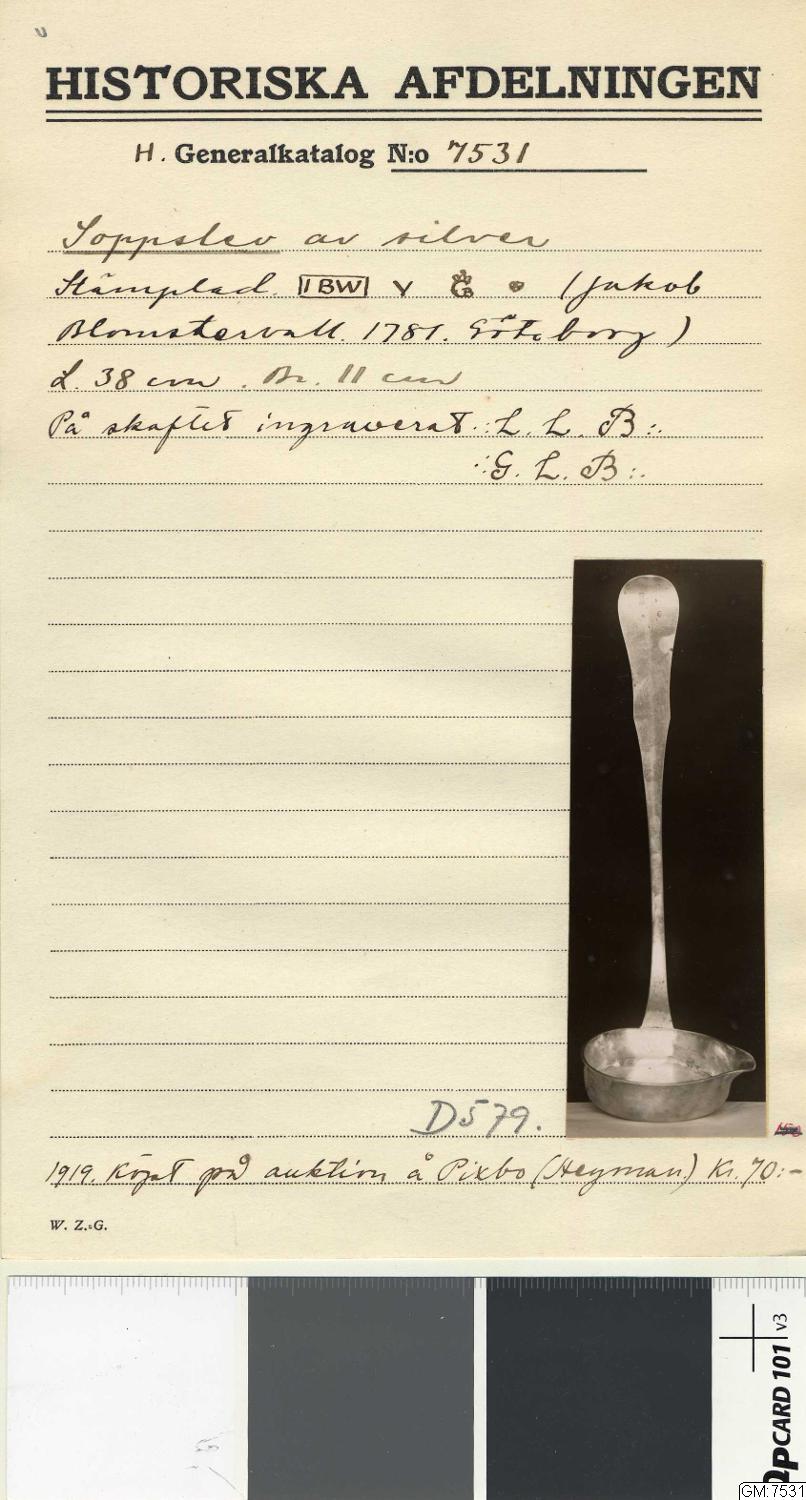 HISTORISKA AFDELNINGEN
H. Generalkatalog N:o 7531
Soppslev av silver
Stämplad. IBW V (Jakob
Blomstervall. 1781. Göteborg)
L. 38 cm. Br. 11 cm
På skaftet ingraverat .:L. L. B:.
.:G. L. B:.
D579.
1919. Köpt på auktion å Pixbo (Heyman) Kr. 70:-
W. Z.-G.
QPCARD 101 v3
GM:7531